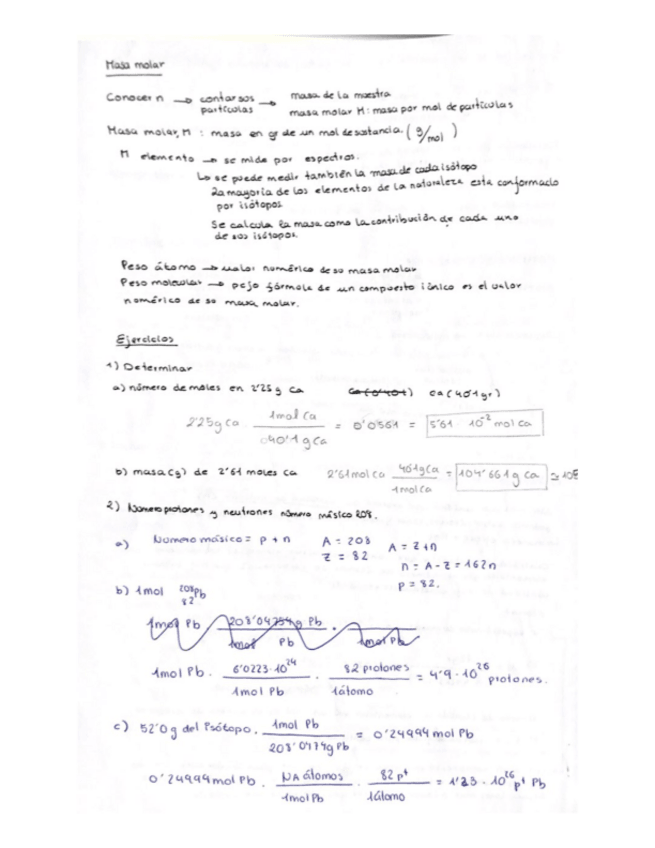 Masa molar
Conocer n → contar sus partículas → masa de la muestra
masa molar M: masa por mol de partículas
Masa molar, M : masa en gr de un mol de sustancia. (g/mol)
M elemento → se mide por espectros.
Lo se puede medir también la masa de cada isótopo
La mayoría de los elementos de la naturaleza esta conformado
por isótopos
Se calcula la masa como la contribución de cada uno
de sus isótopos.
Peso átomo → valor numérico de su masa molar
Peso molecular → peso fórmula de un compuesto iónico es el valor
numérico de su masa molar.
Ejercicios
1) Determinar
a) número de moles en 2'25 g Ca Ca (40'1 gr)
2'25g Ca · 1mol Ca / 40'1 g Ca = 0'0561 = 5'61 · 10⁻² mol Ca
b) masa (g) de 2'61 moles Ca 2'61 mol Ca · 40'1g Ca / 1mol Ca = 104'661 g Ca ≃ 105
2) Número protones y neutrones número másico 208.
a) Numero másico = p + n A = 208 A = Z + n
Z = 82 n = A - Z = 162 n
p = 82.
b) 1mol ²⁰⁸₈₂Pb
1mol Pb · 208'04754g Pb / 1mol Pb · 1mol Pb
1mol Pb · 6'0223·10²⁴ / 1mol Pb · 82 protones / 1átomo = 4'9 · 10²⁶ protones.
c) 52'0 g del isótopo · 1mol Pb / 208'0474g Pb = 0'24994 mol Pb
0'24994 mol Pb · NA átomos / 1mol Pb · 82 p⁺ / 1átomo = 1'23 · 10²⁶ p⁺ Pb